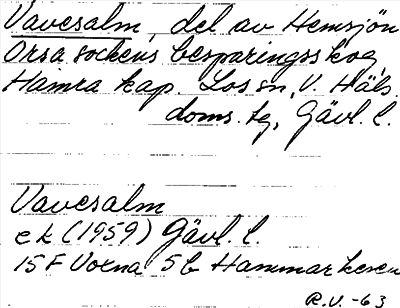 Vavesalm, del av Hemsjön
Orsa sockens besparingsskog,
Hamra kap. Los sn, V. Häls.
doms. tg, Gävl. l.
Vavesalm
ek (1959) Gävl. l.
15 F Voxna 5 b Hammarkesen
R.V. -63